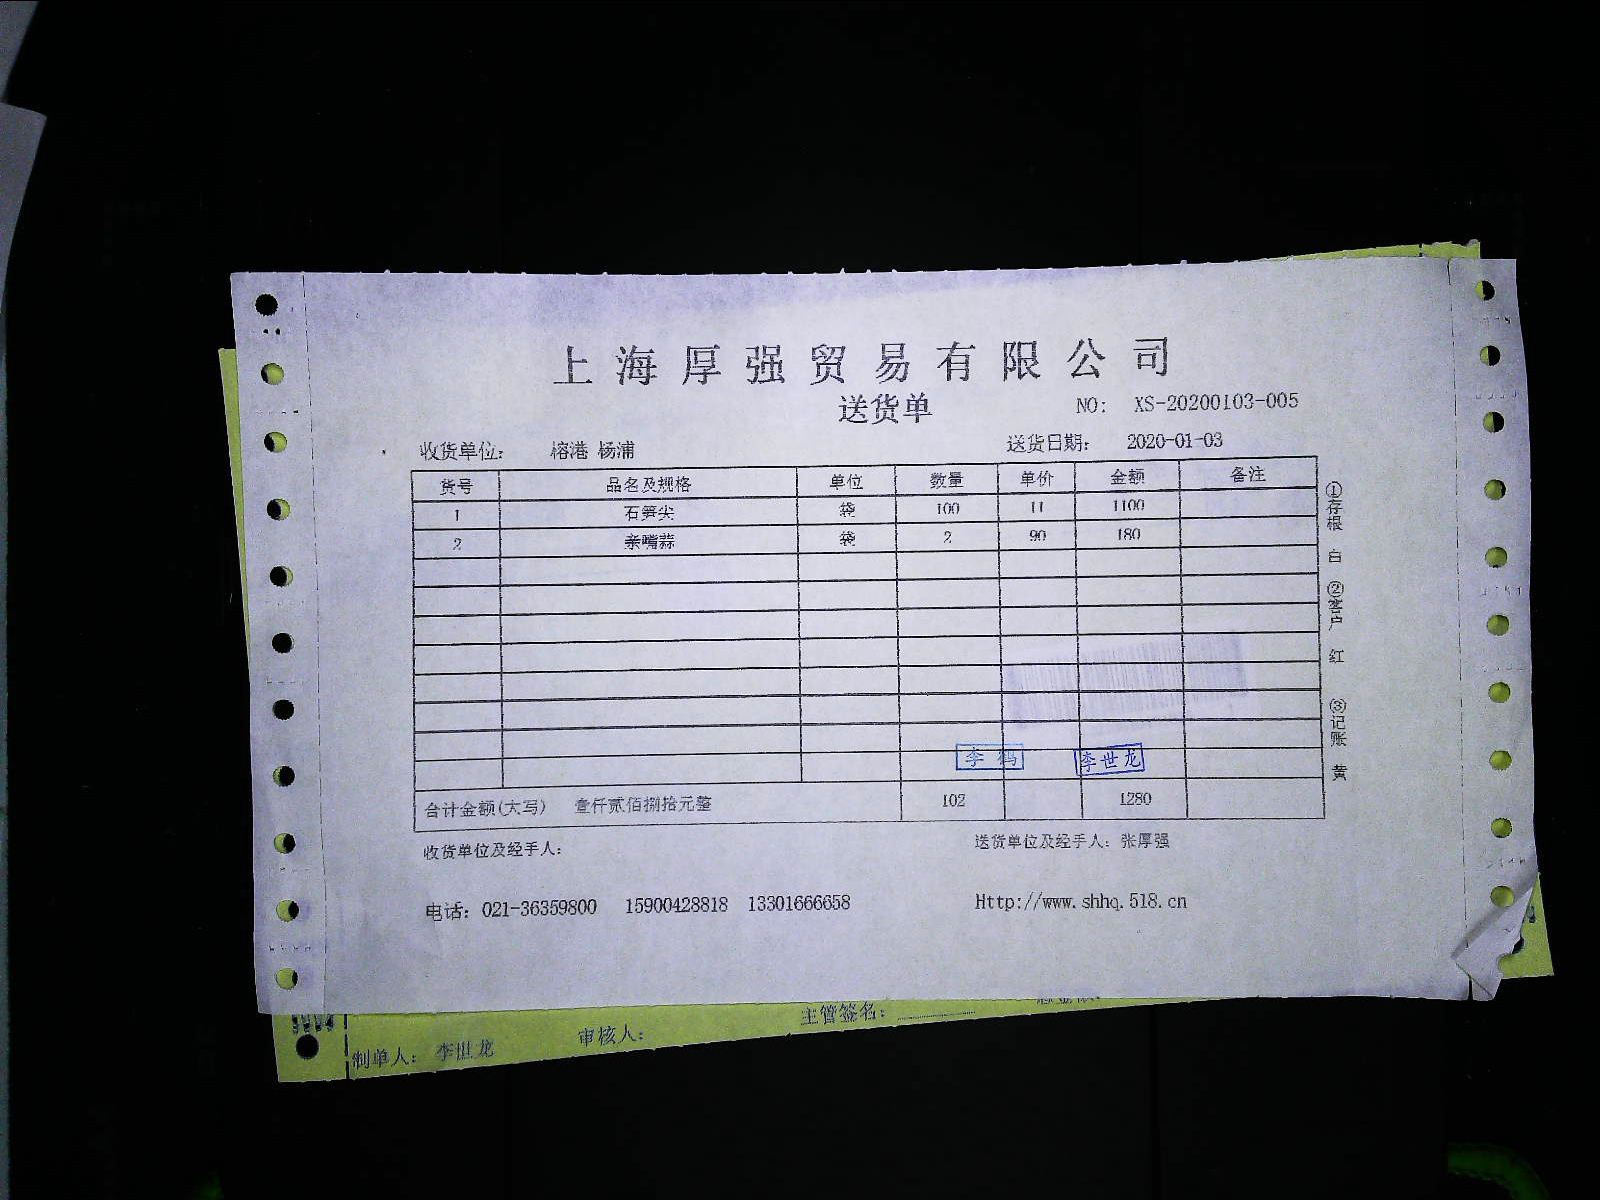 上海厚强贸易有限公司
送货单 NO: XS-20200103-005
收货单位: 榕港 杨浦 送货日期: 2020-01-03
货号 品名及规格 单位 数量 单价 金额 备注
1 石笋尖 袋 100 11 1100
2 亲嘴蒜 袋 2 90 180
①存根 白 ②客户 红 ③记账 黄
李鹤 李世龙
合计金额(大写) 壹仟贰佰捌拾元整 102 1280
收货单位及经手人: 送货单位及经手人: 张厚强
电话: 021-36359800 15900428818 13301666658 Http://www.shhq.518.cn
制单人: 李世龙 审核人: 主管签名: